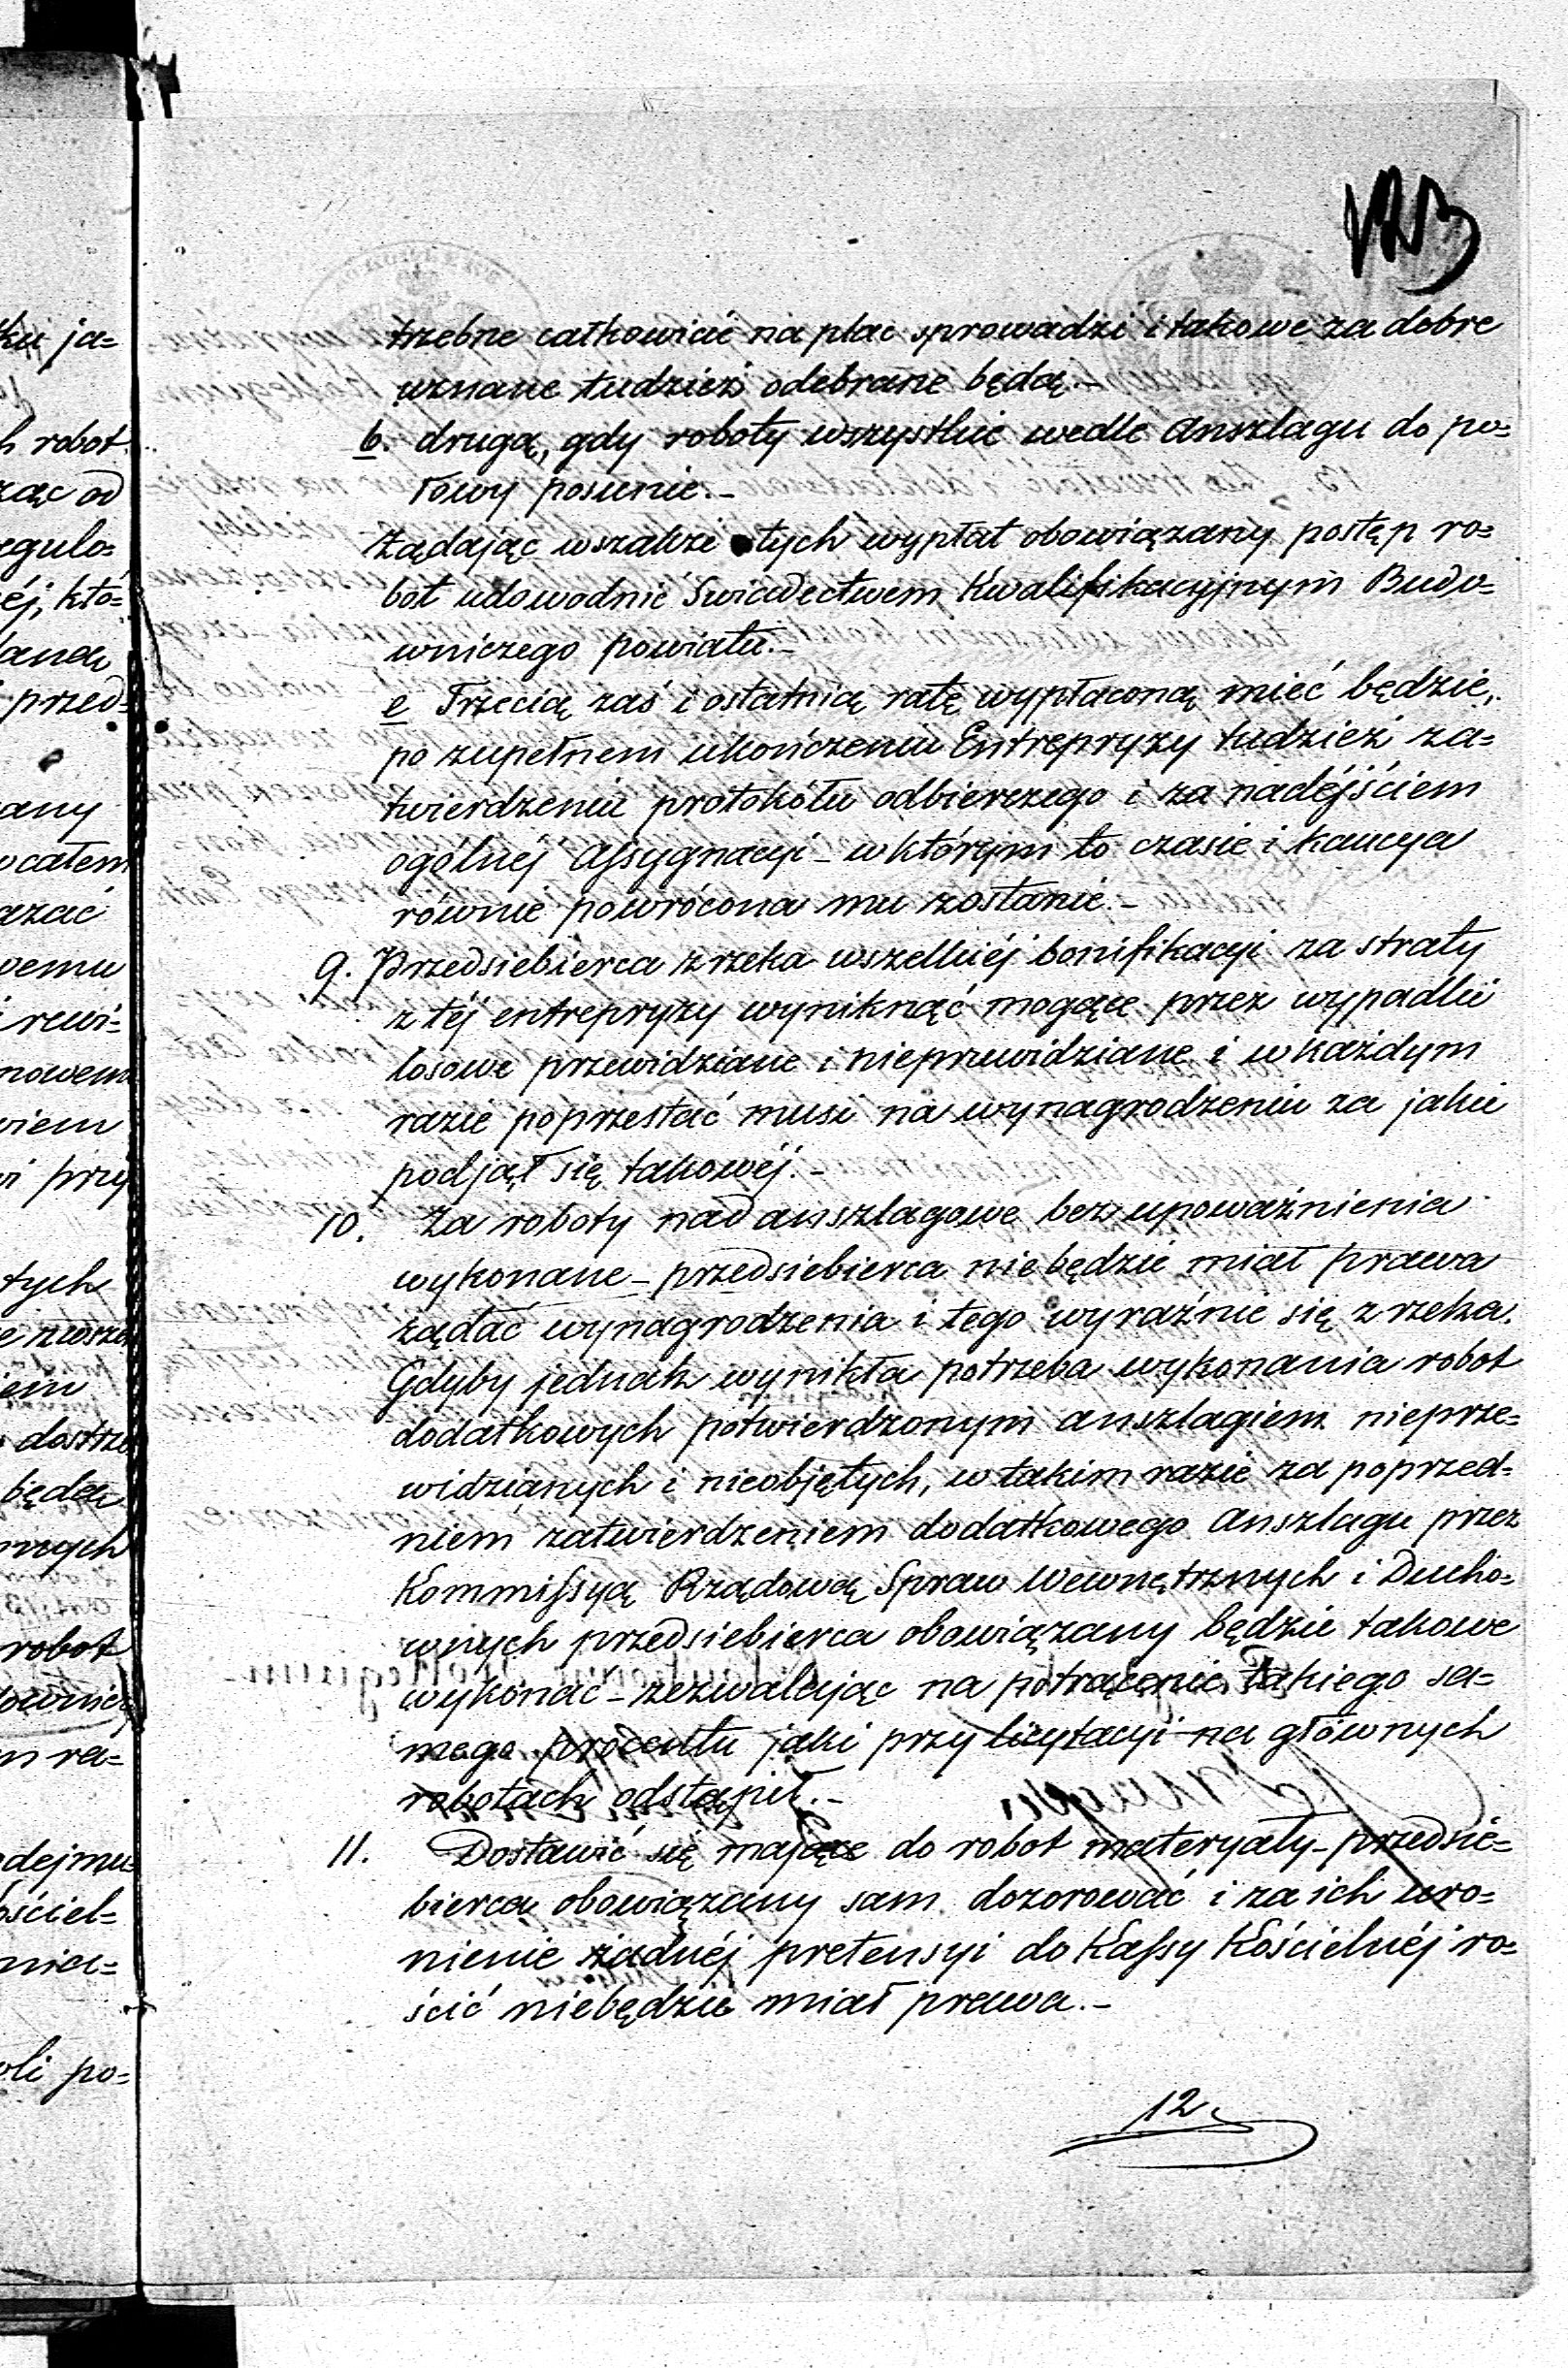 123
trzebne całkowicie na plac sprowadzi i takowe za dobre
uznane tudzież odebrane będą.-
b. drugą, gdy roboty wszystkie wedle Anszlagu do po=
łowy posunie.-
Żądając wszakże tych wypłat obowiązany postęp ro=
bót udowodnić Świadectwem Kwalifikacyjnym Budo=
wniczego powiatu.-
c Trzecią zaś i ostatnią ratę wypłaconą mieć będzie,
po zupełnem ukończeniu Entrepryzy tudzież za=
twierdzeniu protokółu odbierczego i za nadéjściem
ogólnéj Assygnacyi - w którym to czasie i kaucya
równie powrócona mu zostanie.-
9. Przedsiebierca zrzeka wszelkiéj bonifikacyi za straty
z téj entrepryzy wyniknąć mogące przez wypadki
losowe przewidziane i nieprzewidziane i w każdym
razie poprzestać musi na wynagrodzeniu za jakie
podjął się takowéj.-
10. Za roboty nadanszlagowe bez upoważnienia
wykonane - przedsiebierca nie będzie miał prawa
żądać wynagrodzenia i tego wyraźnie się zrzeka.
Gdyby jednak wynikła potrzeba wykonania robot
dodatkowych potwierdzonym anszlagiem nieprze=
widzianych i nieobjętych, w takim razie za poprzed=
niem zatwierdzeniem dodatkowego Anszlagu przez
Kommissyą Rządową Spraw Wewnętrznych i Ducho=
wnych przedsiebierca obowiązany będzie takowe
wykonać - zezwalając na potrącenie takiego sa=
mego procentu jaki przy licytacyi na głównych
robotach odstąpił.-
11. Dostawić się mające do robot materyały - przedsie=
bierca obowiązany sam dozorować i za ich uro=
nienie żadnéj pretensyi do Kassy Kościelnéj ro=
ścić niebędzie miał prawa.-
12